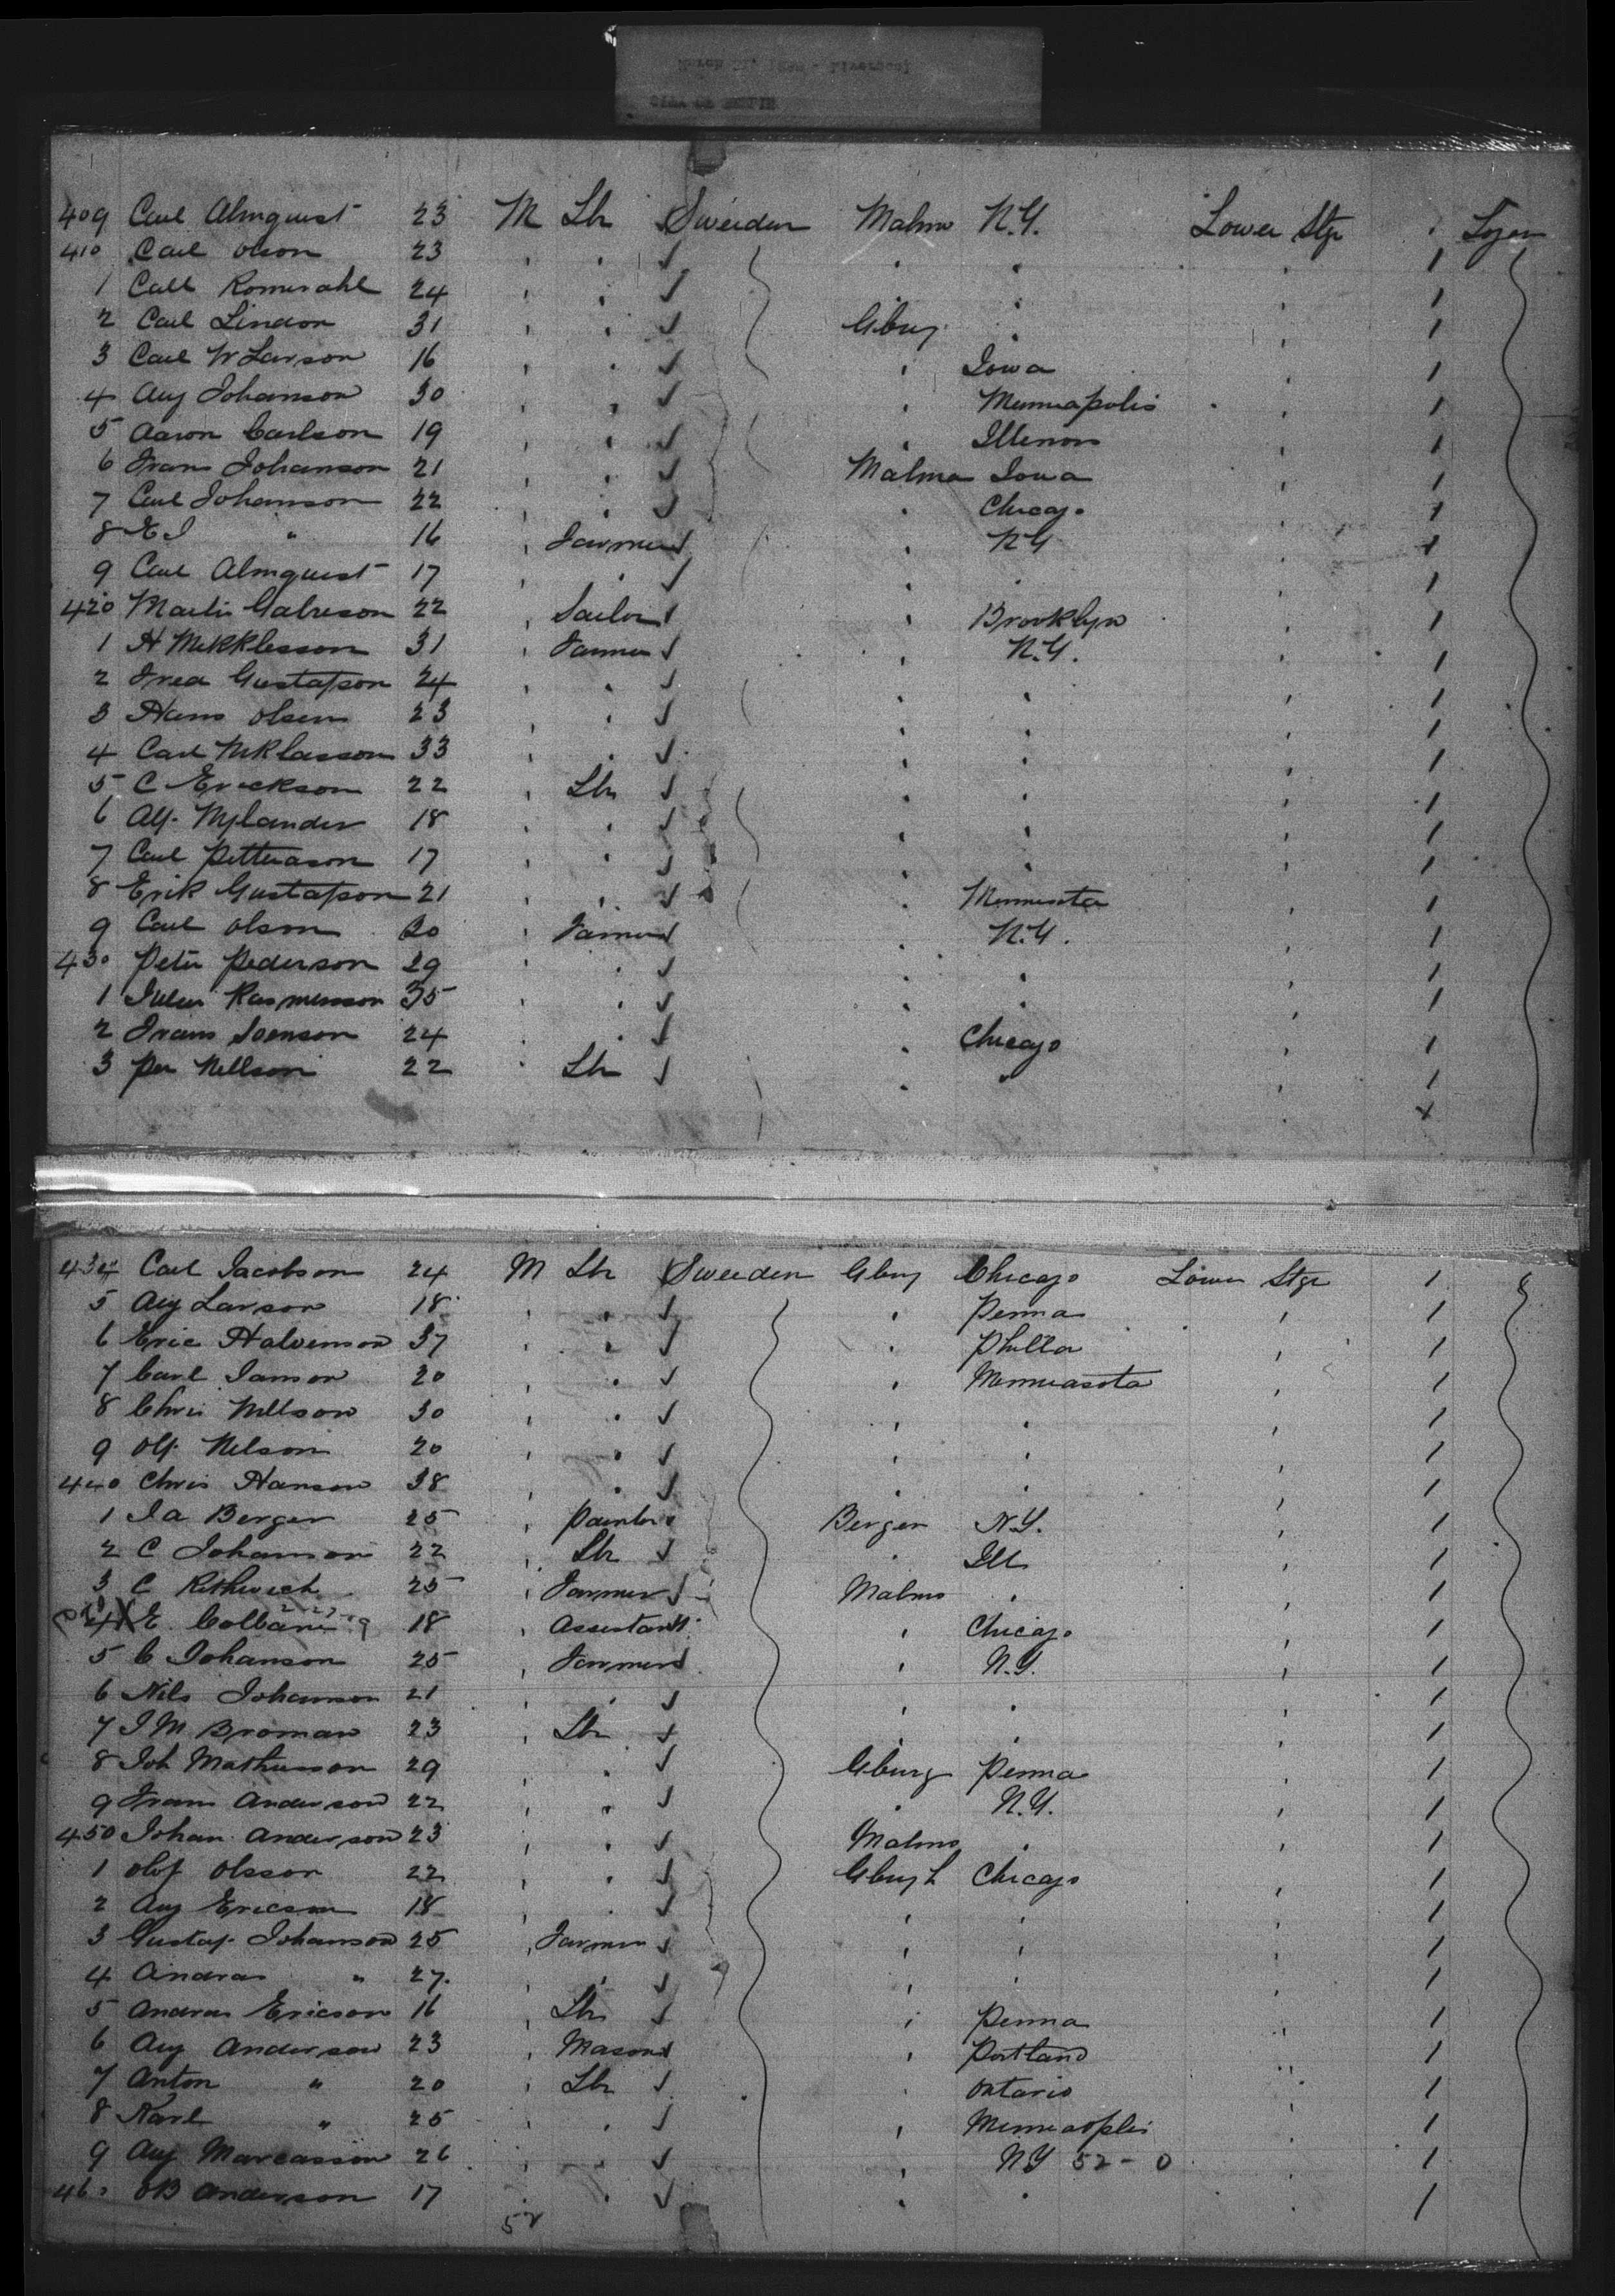 409 Carl Almquist 23 M Lbr Sweeden Malmo N.Y. Lower Stge
410 Carl Olson 23 " " " " "
1 Call Romerahl 24 " " " " "
2 Carl Lindon 31 " " Gburg "
3 Carl W Larson 16 " " " Iowa
4 Aug Johanson 30 " " " Minneapolis
5 Aaron Carlson 19 " " " Illenois
6 Frans Johanson 21 " " Malmo Iowa
7 Carl Johanson 22 " " " Chicago
8 E J " 16 " Farmer " N.Y.
9 Carl Almquist 17 " " " "
420 Martin 22 " Sailor " Brooklyn
1 H Mekklesson 31 " Farmer " N.Y.
2 Fred Gustafson 24 " " " "
3 Hans Olsen 23 " " " "
4 Carl Niklasson 33 " " " "
5 C Erickson 22 " Lbr " "
6 Alf. Nylander 18 " " " "
7 Carl Petterason 17 " " " "
8 Erik Gustafson 21 " " " Minnesota
9 Carl Olson 20 " Farmer " N.Y.
430 Peter Pederson 29 " " " "
1 Julius Rasmusson 35 " " " "
2 Frans Svenson 24 " " " Chicago
3 Per Nellson 22 " Lbr " "
434 Carl Jacobson 24 M Lbr Sweeden Gburg Chicago Lower Stge
5 Aug Larson 18 " " " Penna
6 Eric Halvenson 37 " " " Philla
7 Carl Janson 20 " " " Minneasota
8 Chris Nellson 30 " " " "
9 Olf. Nelson 20 " " " "
440 Chris Hanson 38 " " " "
1 Ja Berger 25 " Painter Bergen N.Y.
2 C Johanson 22 " Lbr " Ill
3 C 25 " Farmer Malmo "
4 X E. Colbani 18 " Assistant " Chicago
5 C Johanson 25 " Farmer " N.Y.
6 Nils Johanson 21 " " " "
7 J M Broman 23 " Lbr " "
8 Joh Mathusson 29 " " Gburg Penna
9 Frans Anderson 22 " " " N.Y.
450 Johan Anderson 23 " " Malmo "
1 Olof Olsson 22 " " Gburg Chicago
2 Aug Ericson 18 " " " "
3 Gustaf Johanson 25 " Farmer " "
4 Andras " 27 " " " "
5 Andras Ericson 16 " Lbr " Penna
6 Aug Anderson 23 " Mason " Portland
7 Anton " 20 " Lbr " Ontario
8 Karl " 25 " " " Minneaoplis
9 Aug Marcasson 26 " " " NY 52 - 0
460 OB Anderson 17 " " " "
52